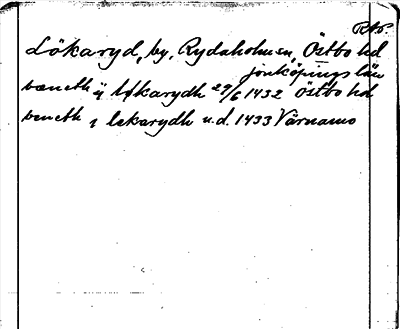 RAP.
Lökaryd, by, Rydaholm sn, Östbo hd
jönköpings län
bæneth ij Løkarydh 29/6 1432 Östbo hd
beneth i lekarydh u.d. 1433 Värnamo